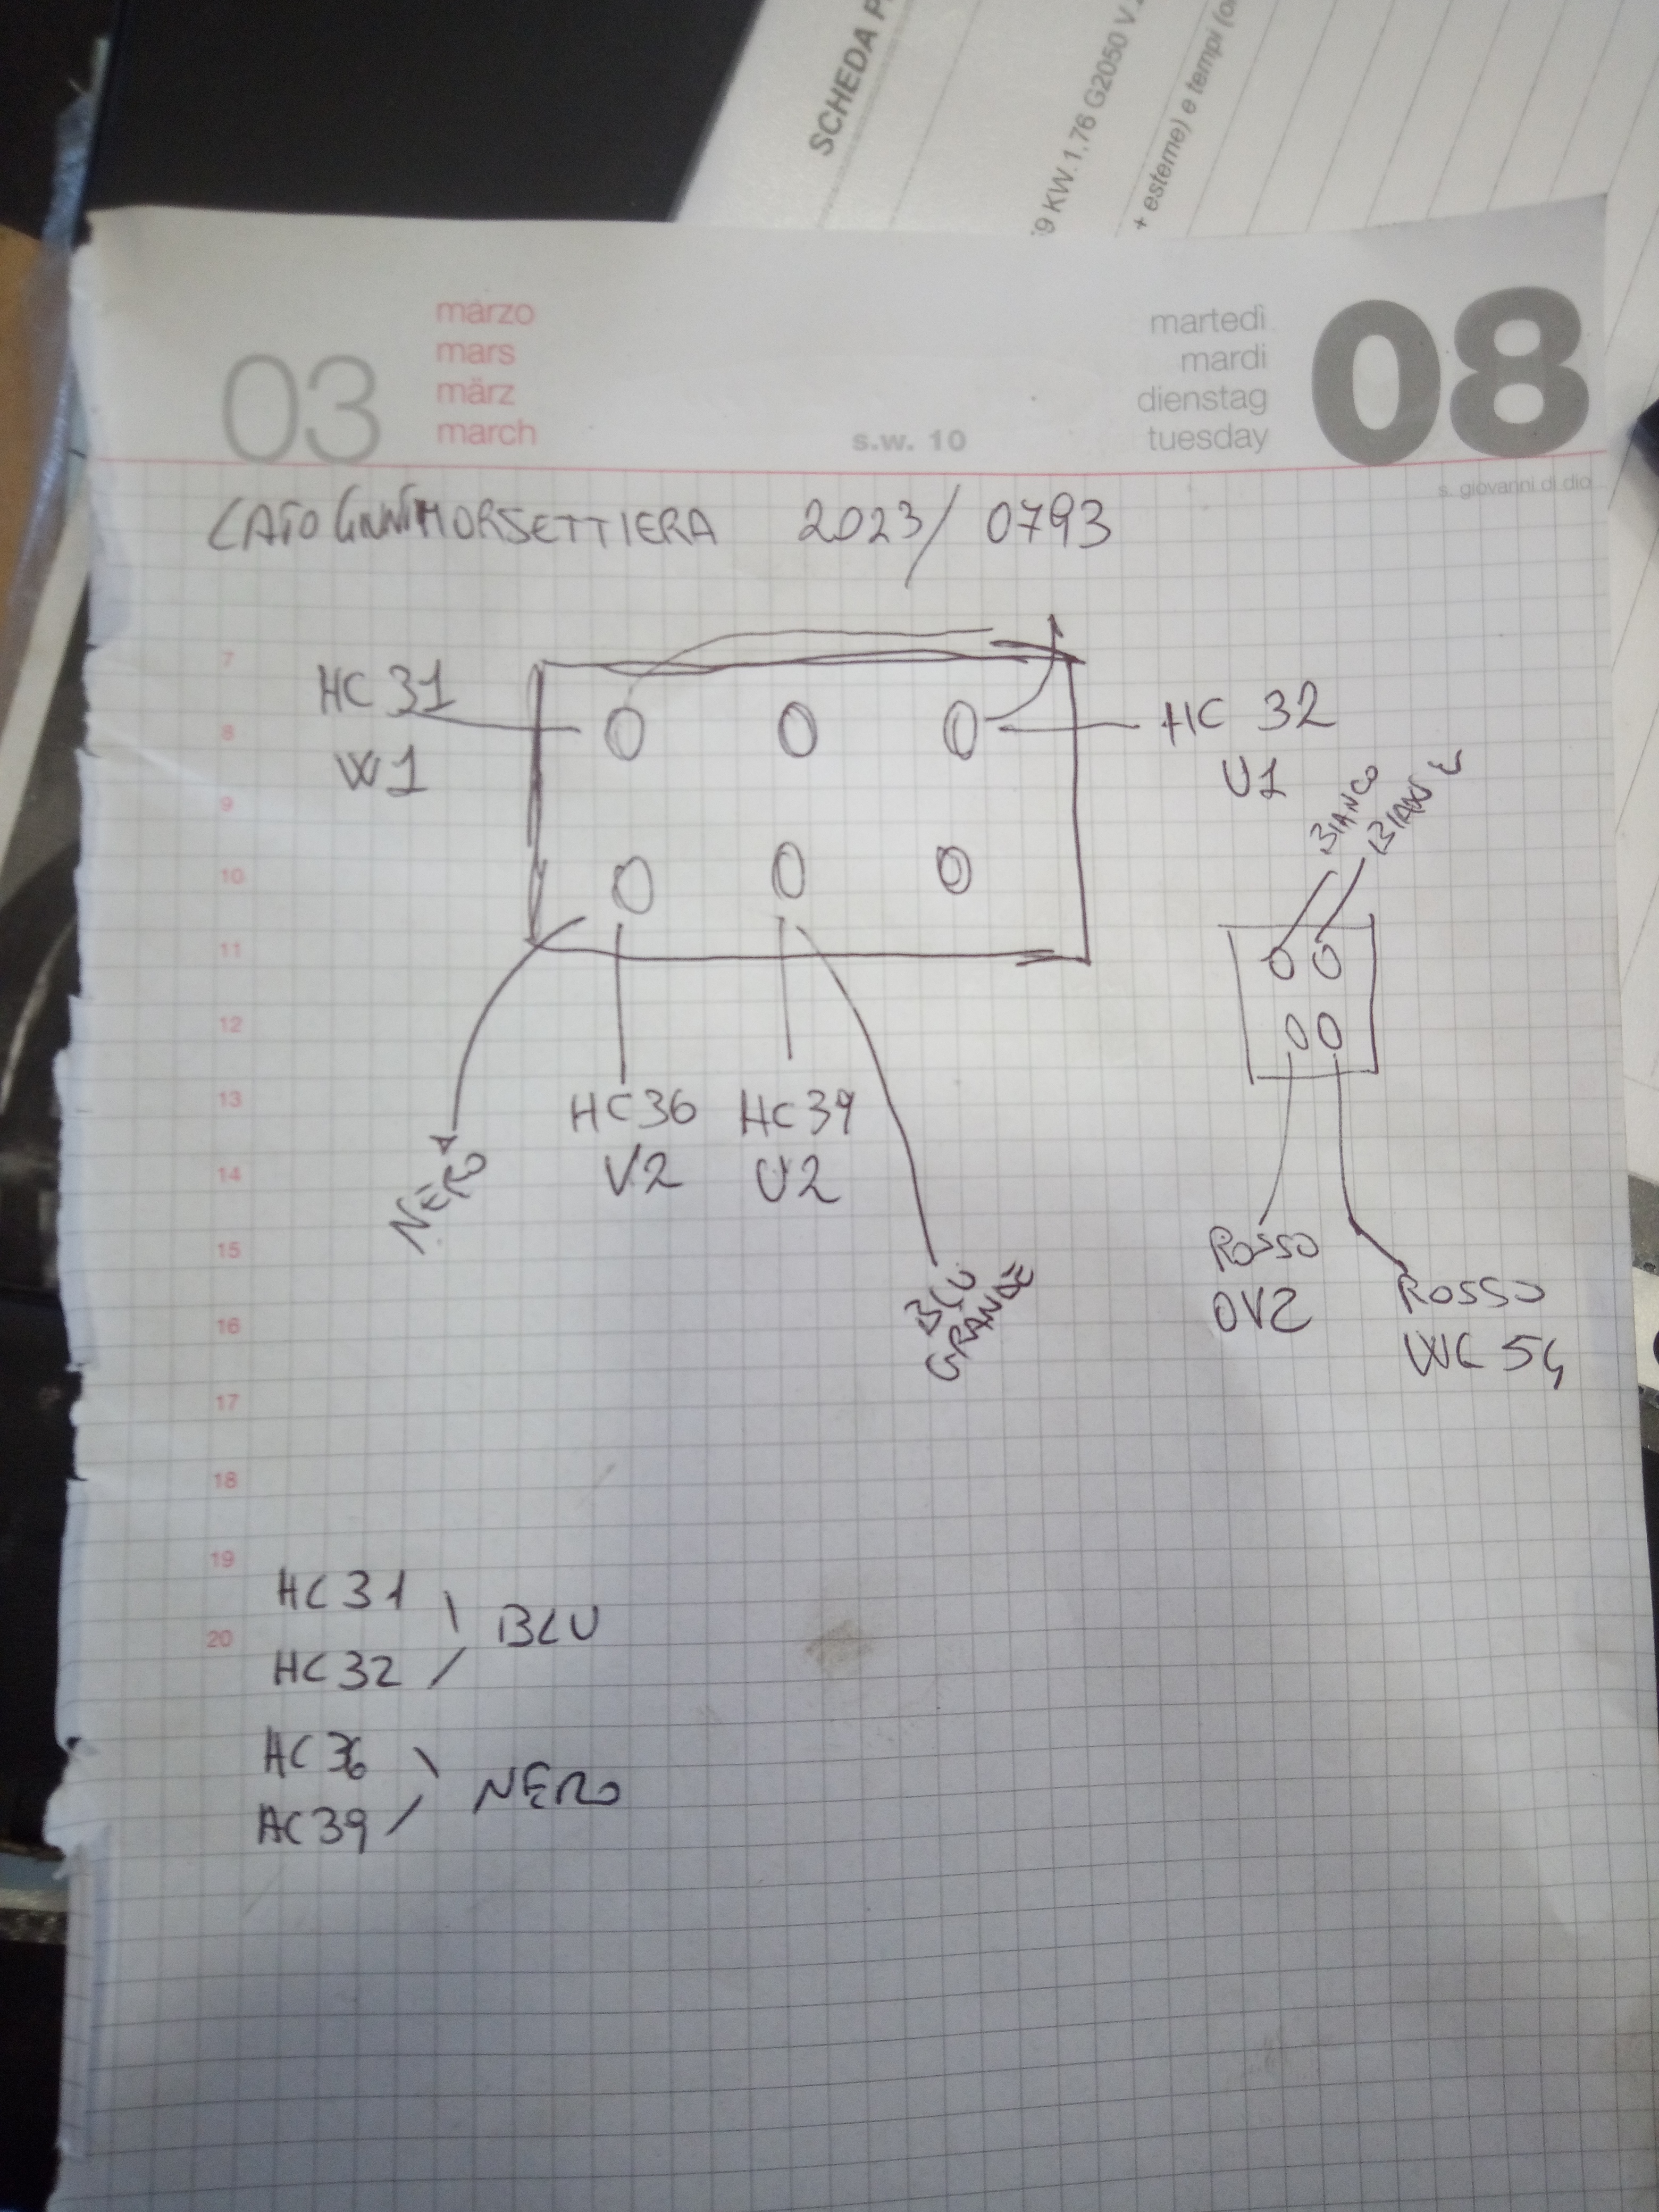 SCHEDA P
9 KW.1,76 G2050 V.
+ esterne) e tempi (o
03
marzo
mars
märz
march
s.w. 10
martedì
mardi
dienstag
tuesday
08
s. giovanni di dio
LATO MORSETTIERA 2023/0793
7
8
9
10
11
12
13
14
15
16
17
18
19
20
HC 31
W1
HC 32
U1
BIANCO
NERO
HC36
V2
HC39
U2
BLU
GRANDE
ROSSO
OV2
ROSSO
WC 54
HC31
HC32
BLU
HC36
AC39
NERO